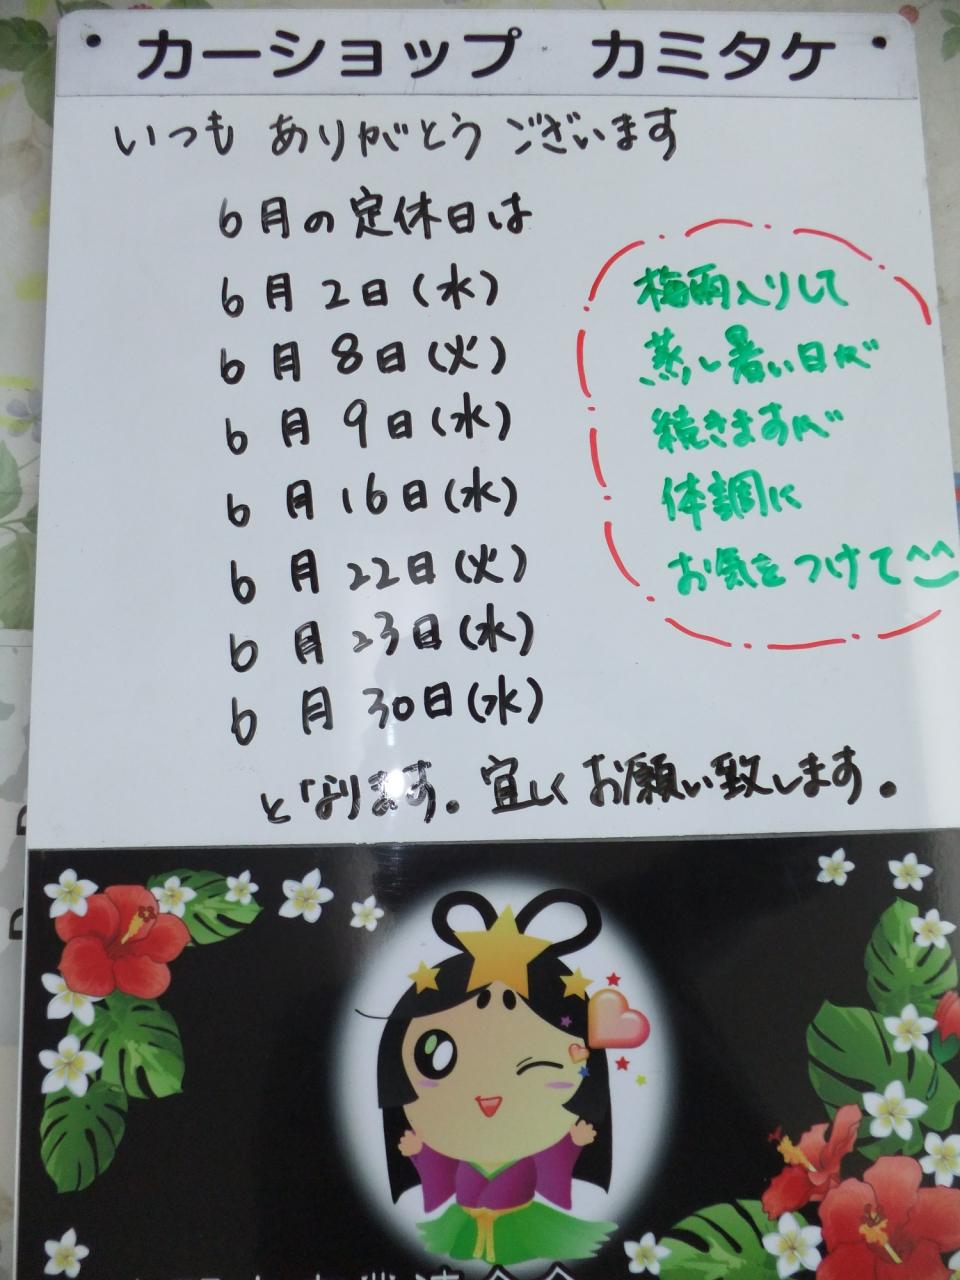 カーショップ カミタケ
いつも ありがとう ございます
6月の定休日は
6月2日(水)
6月8日(火)
6月9日(水)
6月16日(水)
6月22日(火)
6月23日(水)
6月30日(水)
となります。宜しくお願い致します。
梅雨入りして
蒸し暑い日が
続きますが
体調に
お気をつけて^^